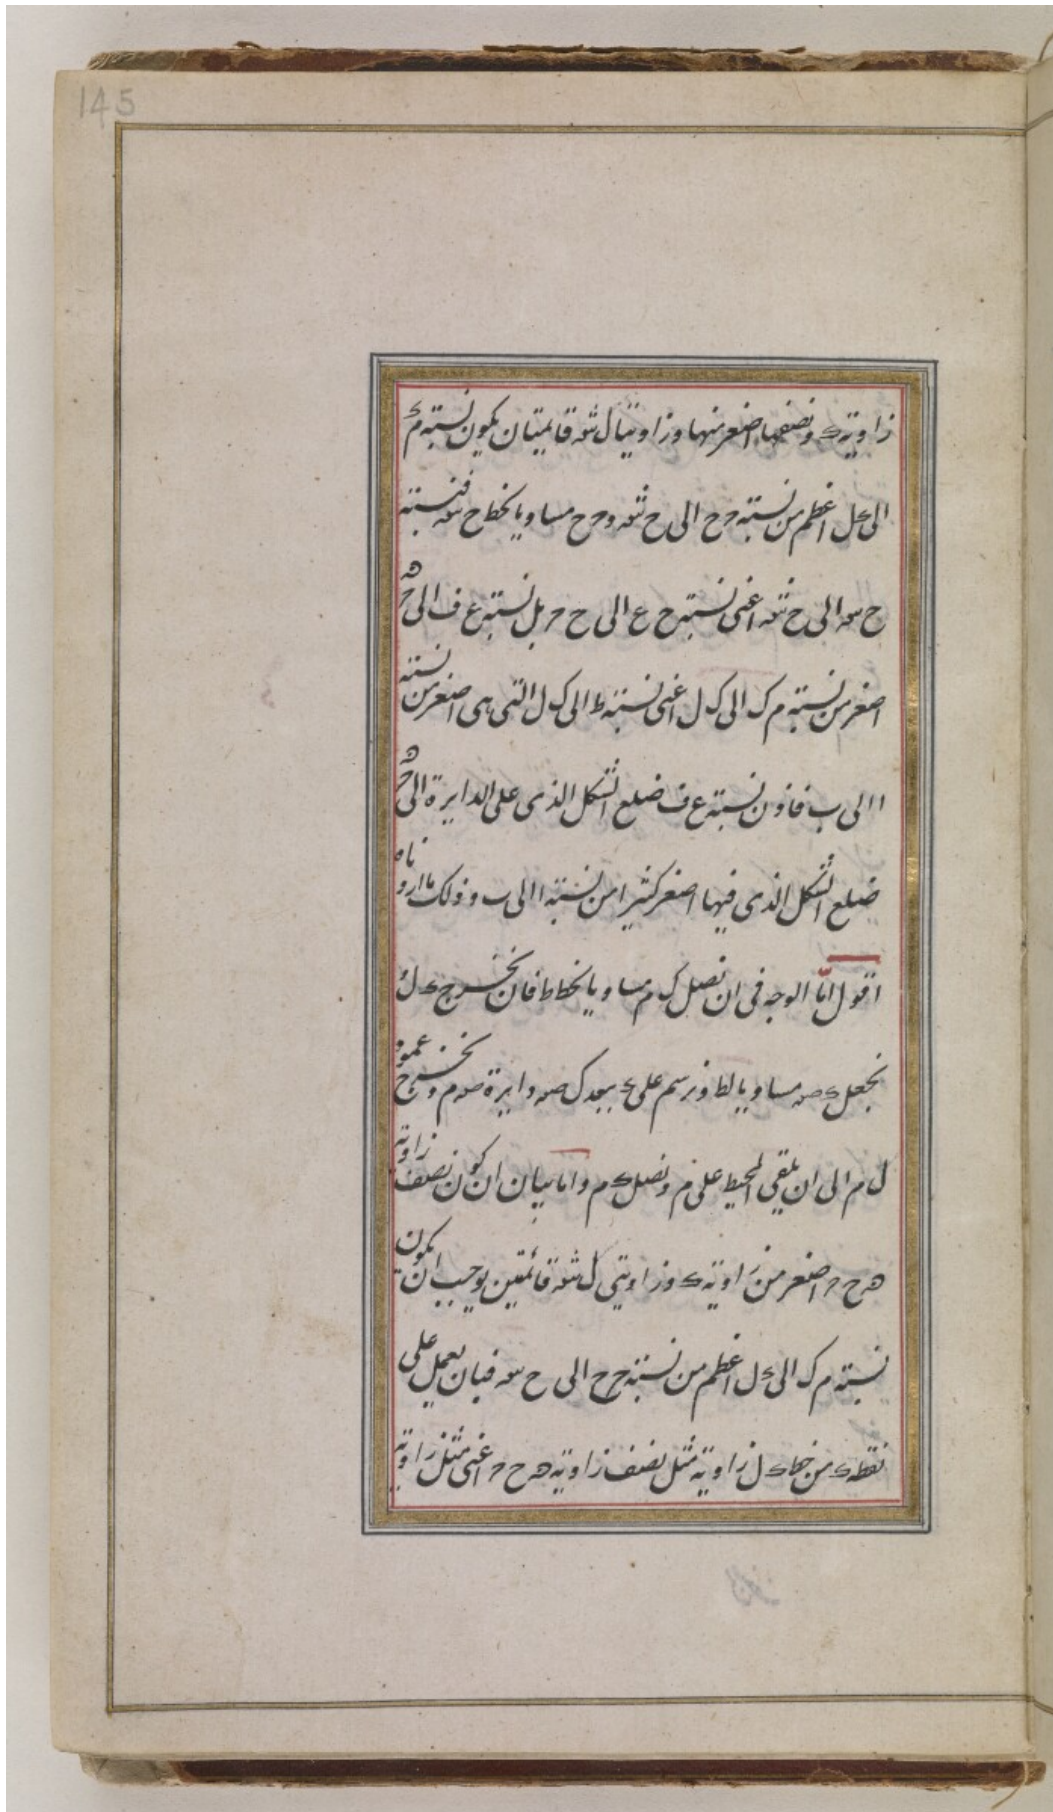 145
زاوية ك ونصفها اصغر منها وزاويتا ل شه قايمتان يكون نسبة م ك
الى ك ل اعظم من نسبة ح ح الى ح شه و ح ح مساويا لخط ح سه فنسبة
ح سه الى ح شه اعنى نسبة ح ع الى ح م بل نسبة ع ف الى
اصغر من نسبة م ك الى ك ل اعنى نسبة ط الى ك ل التى هى اصغر من نسبة
ا الى ب فاذن نسبة ع ف ضلع الشكل الذى على الدايرة الى
ضلع الشكل الذى فيها اصغر كثيرا من نسبة ا الى ب وذلك ما اردناه
اقول اما الوجه فى ان نصل ك م مساويا لخط ط فان نخرج ك ل
نجعل ك صه مساويا لط ونرسم على ك ببعد ك صه دايرة صه م ونخرج عمود
ل م الى ان يلقى المحيط على م ونصل ك م واما بيان ان كون نصف زاوية
ه ح م اصغر من زاوية ك وزاويتى ل شه قائمتين يوجب ان يكون
نسبة م ك الى ك ل اعظم من نسبة ح ح الى ح سه فبان يعمل على
نقطة ك من خط ك ل زاوية مثل نصف زاوية ه ح م اعنى مثل زاوية